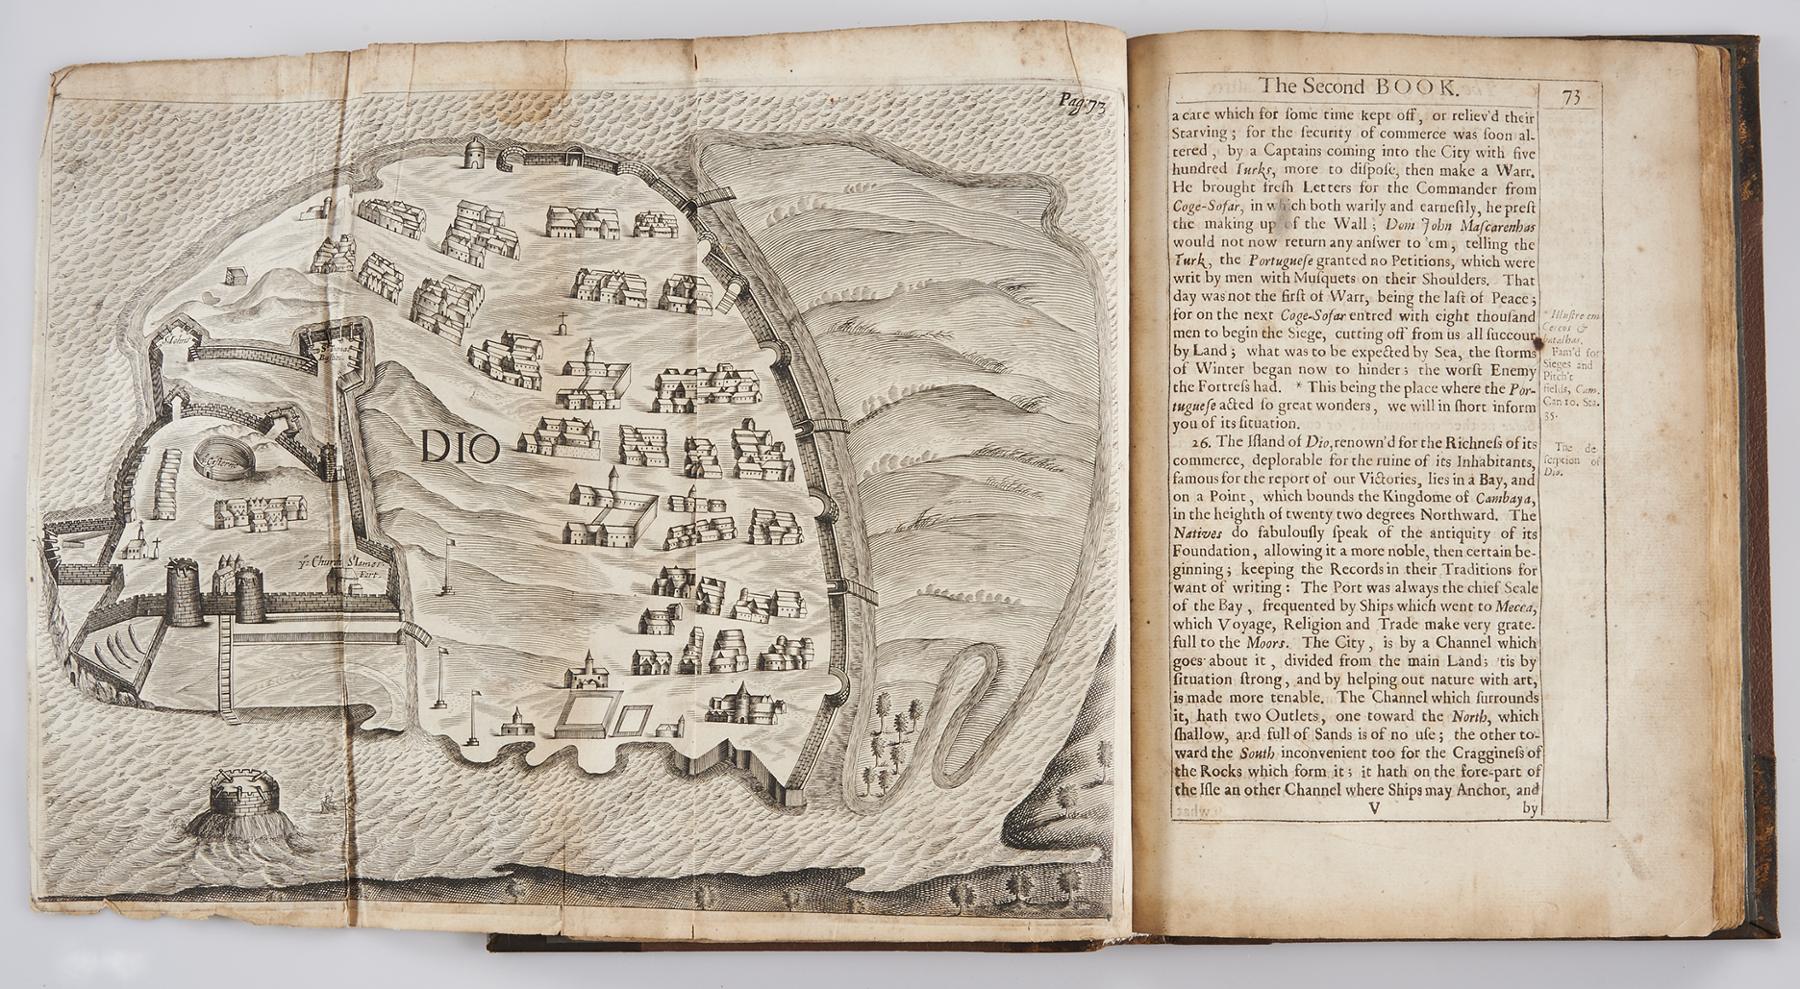 Pag: 73
St John's
DIO
Cisterne
ye Church St Iames
Fort.
The Second BOOK.
73
a care which for ſome time kept off, or reliev'd their
Starving; for the ſecurity of commerce was ſoon al-
tered, by a Captains coming into the City with five
hundred Turks, more to diſpoſe, then make a Warr.
He brought freſh Letters for the Commander from
Coge-Sofar, in which both warily and earneſtly, he preſt
the making up of the Wall; Dom John Maſcarenhas
would not now return any anſwer to 'em, telling the
Turk, the Portugueſe granted no Petitions, which were
writ by men with Muſquets on their Shoulders. That
day was not the firſt of Warr, being the laſt of Peace;
for on the next Coge-Sofar entred with eight thouſand
men to begin the Siege, cutting off from us all ſuccour
by Land; what was to be expected by Sea, the ſtorms
of Winter began now to hinder; the worſt Enemy
the Fortreſs had. * This being the place where the Por-
tugueſe acted ſo great wonders, we will in ſhort inform
you of its ſituation.
26. The Iſland of Dio, renown'd for the Richneſs of its
commerce, deplorable for the ruine of its Inhabitants,
famous for the report of our Victories, lies in a Bay, and
on a Point, which bounds the Kingdome of Cambaya,
in the heighth of twenty two degrees Northward. The
Natives do fabulouſly ſpeak of the antiquity of its
Foundation, allowing it a more noble, then certain be-
ginning; keeping the Records in their Traditions for
want of writing: The Port was always the chief Scale
of the Bay, frequented by Ships which went to Mecca,
which Voyage, Religion and Trade make very grate-
full to the Moors. The City, is by a Channel which
goes about it, divided from the main Land; 'tis by
ſituation ſtrong, and by helping out nature with art,
is made more tenable. The Channel which ſurrounds
it, hath two Outlets, one toward the North, which
ſhallow, and full of Sands is of no uſe; the other to-
ward the South inconvenient too for the Cragginess of
the Rocks which form it; it hath on the fore-part of
the Iſle an other Channel where Ships may Anchor, and
V by
* Illuſtre em
Cercos &
batalhas.
Fam'd for
Sieges and
Pitch't
fields, Cam.
Canto. Sta.
35.
The de
ſcription of
Dio.